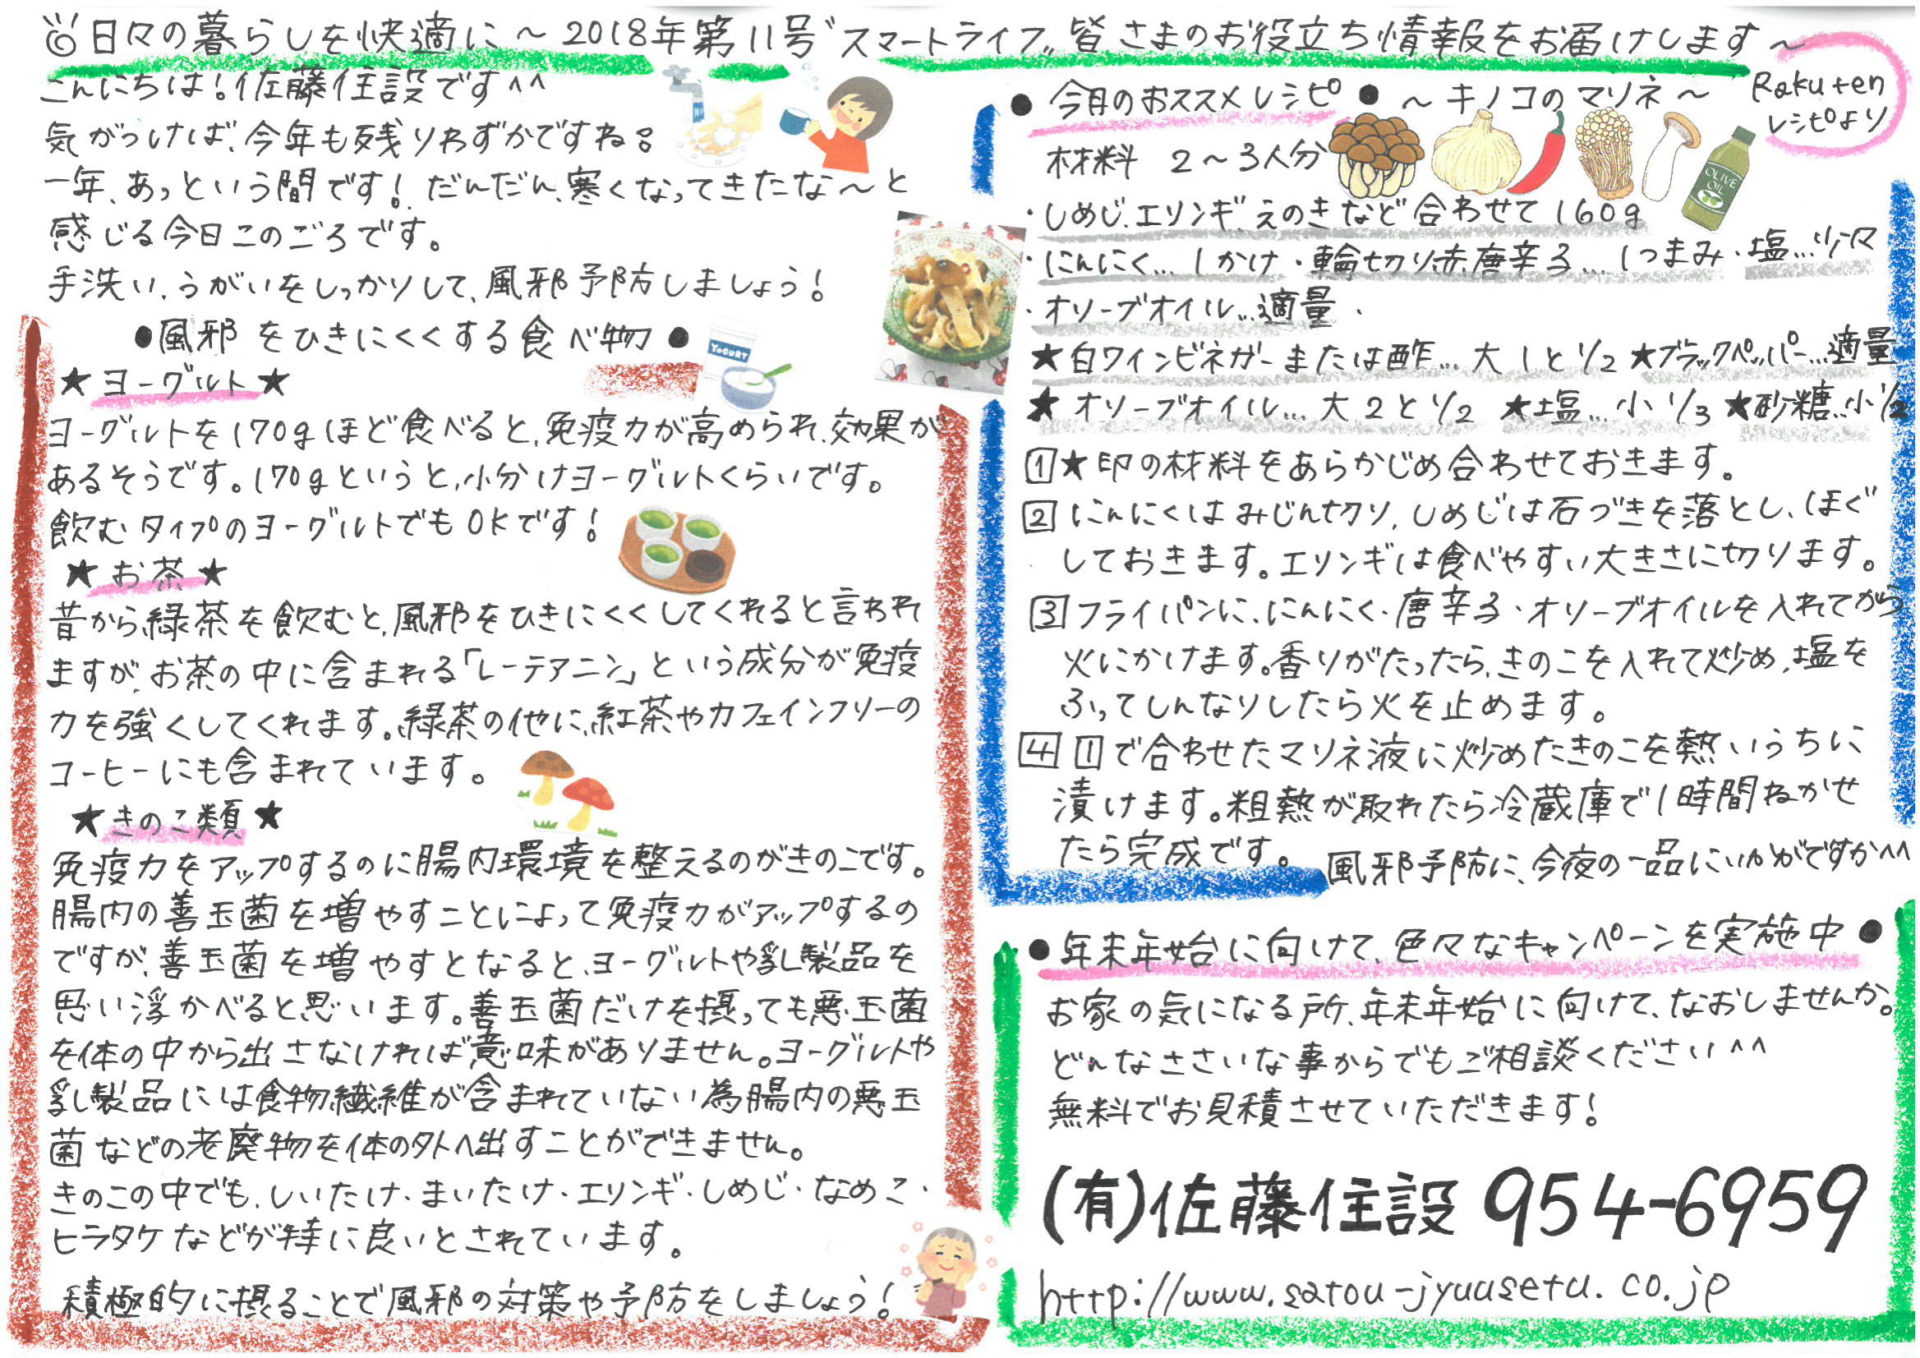 日々の暮らしを快適に～2018年第11号"スマートライフ"皆さまのお役立ち情報をお届けします～
こんにちは!佐藤住設です^^
気がつけば、今年も残りわずかですね。
一年、あっという間です!だんだん、寒くなってきたな～と
感じる今日このごろです。
手洗い、うがいをしっかりして、風邪予防しましょう!
●風邪をひきにくくする食べ物●
YOGURT
★ヨーグルト★
ヨーグルトを170gほど食べると、免疫力が高められ、効果が
あるそうです。170gというと、小分けヨーグルトくらいです。
飲むタイプのヨーグルトでもOKです!
★お茶★
昔から緑茶を飲むと、風邪をひきにくくしてくれると言われ
ますが、お茶の中に含まれる「L-テアニン」という成分が免疫
力を強くしてくれます。緑茶の他に、紅茶やカフェインフリーの
コーヒーにも含まれています。
★きのこ類★
免疫力をアップするのに腸内環境を整えるのがきのこです。
腸内の善玉菌を増やすことによって免疫力がアップするの
ですが、善玉菌を増やすとなると、ヨーグルトや乳製品を
思い浮かべると思います。善玉菌だけを摂っても悪玉菌
を体の中から出さなければ意味がありません。ヨーグルトや
乳製品には食物繊維が含まれていない為腸内の悪玉
菌などの老廃物を体の外へ出すことができません。
きのこの中でも、しいたけ・まいたけ・エリンギ・しめじ・なめこ・
ヒラタケなどが特に良いとされています。
積極的に摂ることで風邪の対策や予防をしましょう!
●今月のおススメレシピ●～キノコのマリネ～
Rakuten
レシピより
材料 2～3人分
OLIVE
OIL
・しめじ、エリンギ、えのきなど合わせて160g
・にんにく…1かけ・輪切り赤唐辛子…1つまみ・塩…少々
・オリーブオイル…適量・
★白ワインビネガーまたは酢…大1と1/2 ★ブラックペッパー…適量
★オリーブオイル…大2と1/2 ★塩…小1/3 ★砂糖…小1/2
1 ★印の材料をあらかじめ合わせておきます。
2 にんにくはみじん切り、しめじは石づきを落とし、ほぐ
しておきます。エリンギは食べやすい大きさに切ります。
3 フライパンに、にんにく・唐辛子・オリーブオイルを入れてから
火にかけます。香りがたったら、きのこを入れて炒め、塩を
ふってしんなりしたら火を止めます。
4 1で合わせたマリネ液に炒めたきのこを熱いうちに
漬けます。粗熱が取れたら冷蔵庫で1時間ねかせ
たら完成です。
風邪予防に、今夜の一品にいかがですか^^
●年末年始に向けて、色々なキャンペーンを実施中●
お家の気になる所、年末年始に向けて、なおしませんか。
どんなささいな事からでもご相談ください^^
無料でお見積させていただきます!
(有)佐藤住設 954-6959
http://www.satou-jyuusetu.co.jp